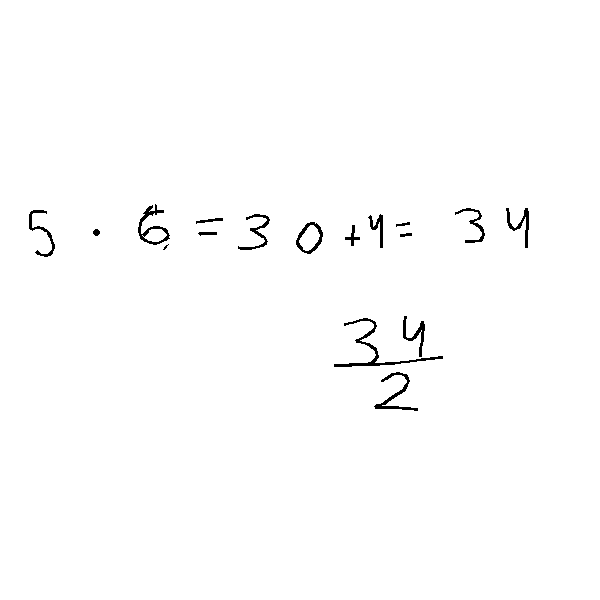 5 · 6 = 30 + 4 = 34
34
2